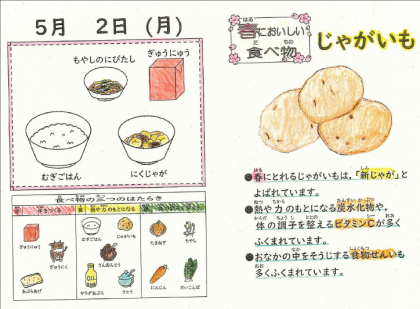 5月 2日 (月)
もやしのにびたし
ぎゅうにゅう
むぎごはん
にくじゃが
食べ物の三つのはたらき
体をつくる
熱や力のもとになる
ぎゅうにゅう
ぎゅうにく
あぶらあげ
むぎごはん
じゃがいも
サラダあぶら
さとう
たまねぎ
もやし
にんじん
はる
春においしい
た もの
食べ物
じゃがいも
はる
●春にとれるじゃがいもは、「新じゃが」と
よばれています。
●熱や力のもとになる炭水化物や、
体の調子を整えるビタミンCが多く
ふくまれています。
●おなかの中をそうじする食物せんいも
多くふくまれています。